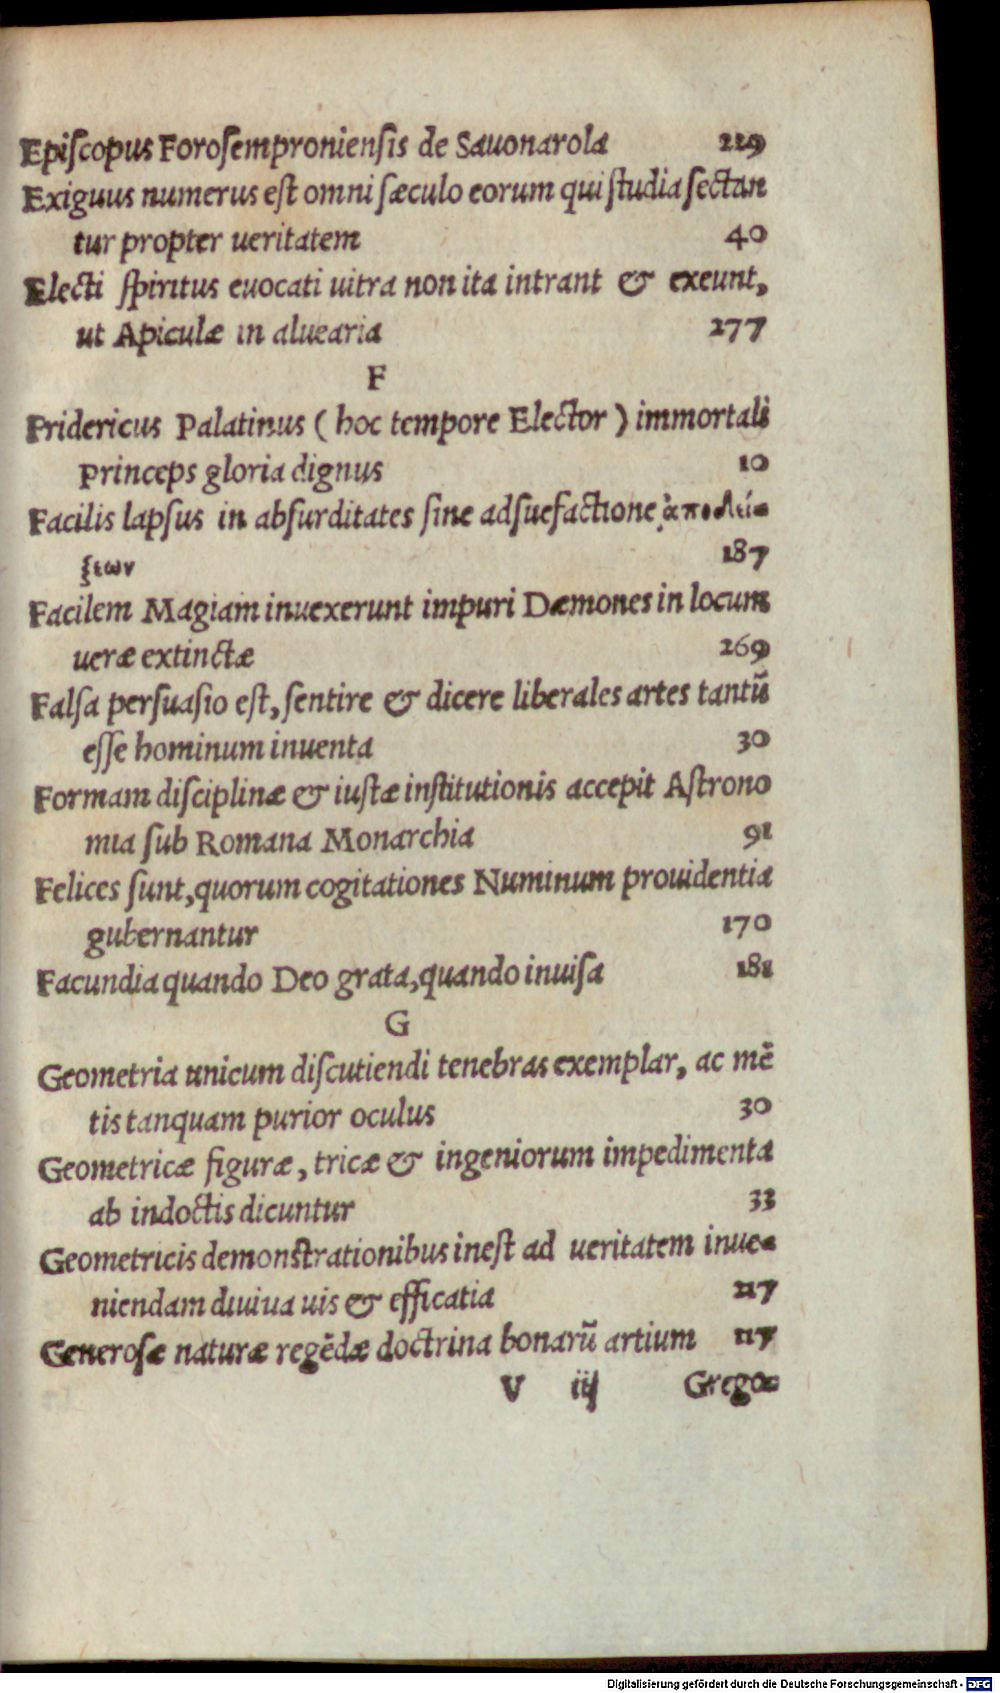 Episcopus Forosemproniensis de Sauonarola 229
Exiguus numerus est omni sæculo eorum qui studia sectan
tur propter ueritatem 40
Electi spiritus euocati uitra non ita intrant & exeunt,
ut Apiculæ in aluearia 277
F
Fridericus Palatinus ( hoc tempore Elector ) immortali
princeps gloria dignus 10
Facilis lapsus in absurditates sine adsuefactione ἀποδεί=
ξεων 187
Facilem Magiam inuexerunt impuri Dæmones in locum
ueræ extinctæ 269
Falsa persuasio est, sentire & dicere liberales artes tantũ
esse hominum inuenta 30
Formam disciplinæ & iustæ institutionis accepit Astrono
mia sub Romana Monarchia 91
Felices sunt, quorum cogitationes Numinum prouidentia
gubernantur 170
Facundia quando Deo grata, quando inuisa 181
G
Geometria unicum discutiendi tenebras exemplar, ac mẽ
tis tanquam purior oculus 30
Geometricæ figuræ, tricæ & ingeniorum impedimenta
ab indoctis dicuntur 33
Geometricis demonstrationibus inest ad ueritatem inue=
niendam diuina uis & efficatia 117
Generosæ naturæ regẽdæ doctrina bonarũ artium 117
V iij Grego=
Digitalisierung gefördert durch die Deutsche Forschungsgemeinschaft - DFG